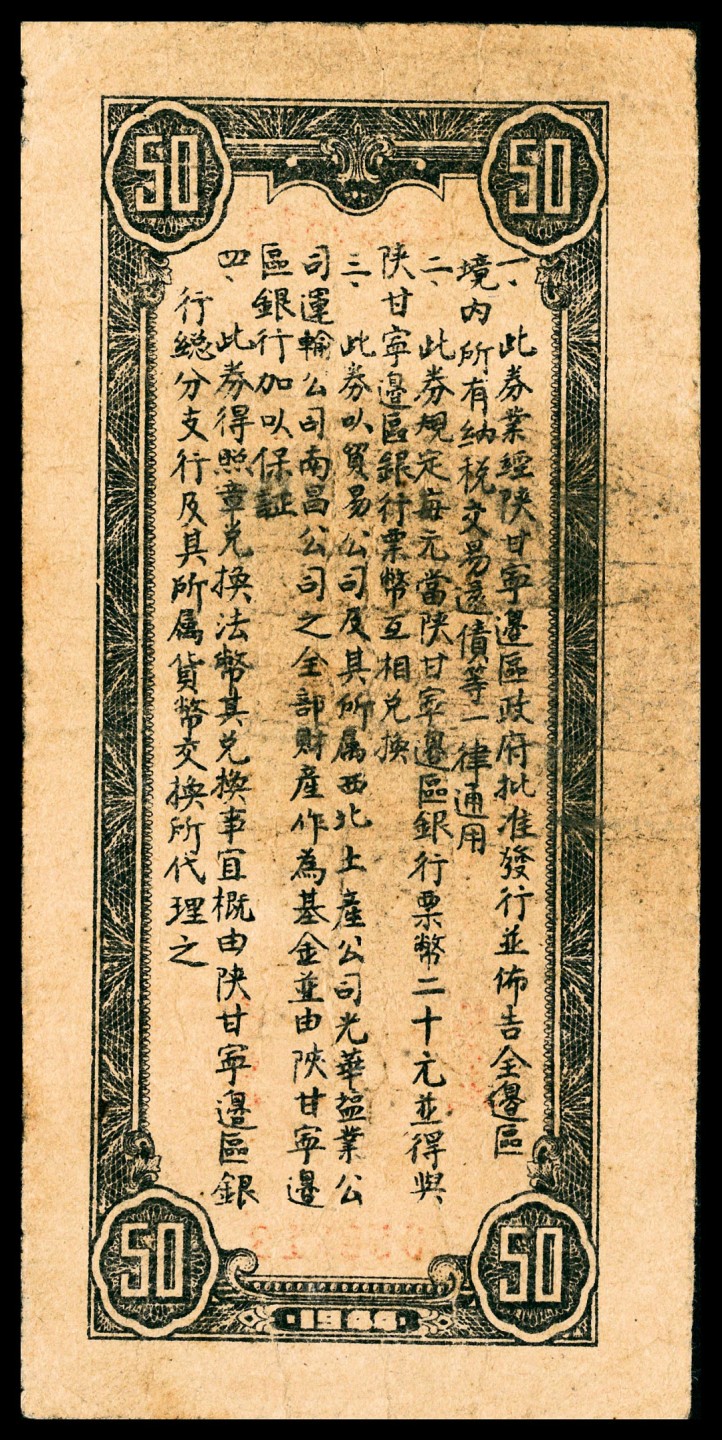 50 50
一、此券業經陝甘寧邊區政府批准發行並佈告全邊區
境内所有纳税交易還債等一律通用
二、此券規定每元當陝甘寧邊區銀行票幣二十元並得與
陝甘寧邊區銀行票幣互相兑換
三、此券以貿易公司及其所属西北土產公司光華塩業公
司運輸公司南昌公司之全部財產作為基金並由陝甘寧邊
區銀行加以保証
四、此券得照章兑換法幣其兑換事宜概由陝甘寧邊區銀
行總分支行及其所属貨幣交換所代理之
50 50
1944